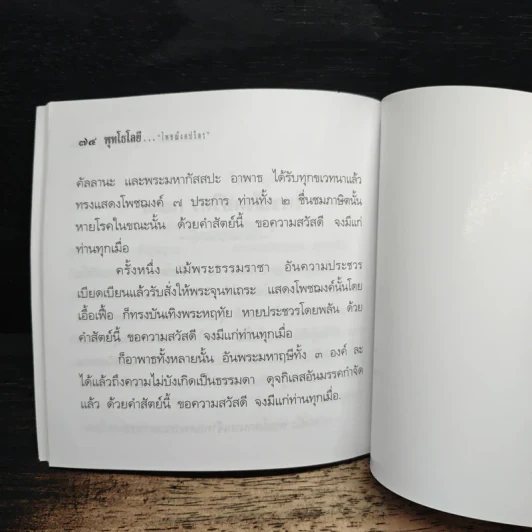 ๗๔ พุทโธโลยี... "โพชฌังคปริตร"
คัลลานะ และพระมหากัสสปะ อาพาธ ได้รับทุกขเวทนาแล้ว
ทรงแสดงโพชฌงค์ ๗ ประการ ท่านทั้ง ๒ ชื่นชมภาษิตนั้น
หายโรคในขณะนั้น ด้วยคำสัตย์นี้ ขอความสวัสดี จงมีแก่
ท่านทุกเมื่อ
ครั้งหนึ่ง แม้พระธรรมราชา อันความประชวร
เบียดเบียนแล้วรับสั่งให้พระจุนทเถระ แสดงโพชฌงค์นั้นโดย
เอื้อเฟื้อ ก็ทรงบันเทิงพระหฤทัย หายประชวรโดยพลัน ด้วย
คำสัตย์นี้ ขอความสวัสดี จงมีแก่ท่านทุกเมื่อ
ก็อาพาธทั้งหลายนั้น อันพระมหาฤษีทั้ง ๓ องค์ ละ
ได้แล้วถึงความไม่บังเกิดเป็นธรรมดา ดุจกิเลสอันมรรคกำจัด
แล้ว ด้วยคำสัตย์นี้ ขอความสวัสดี จงมีแก่ท่านทุกเมื่อ.